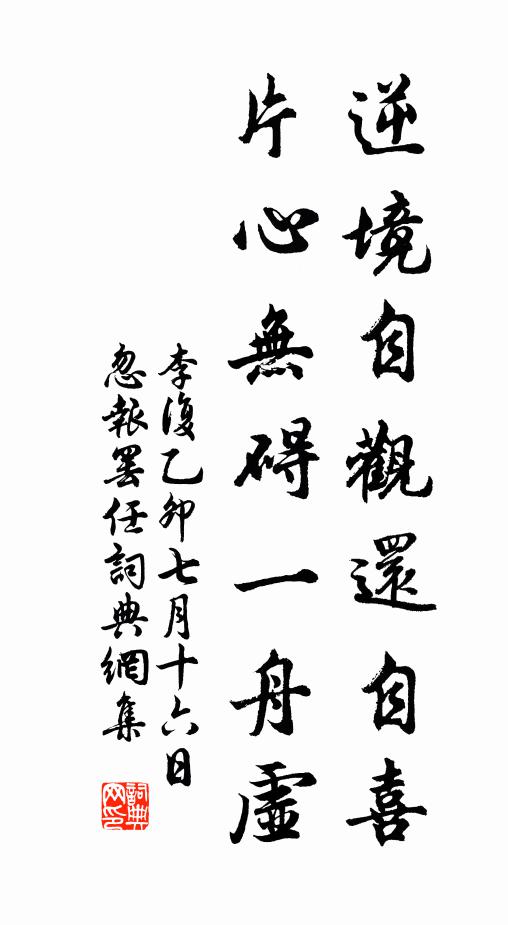 逆境自觀還自喜
片心無碍一舟虛
李復乙卯七月十六日
忽報罷任詞典網集
詞典
网印